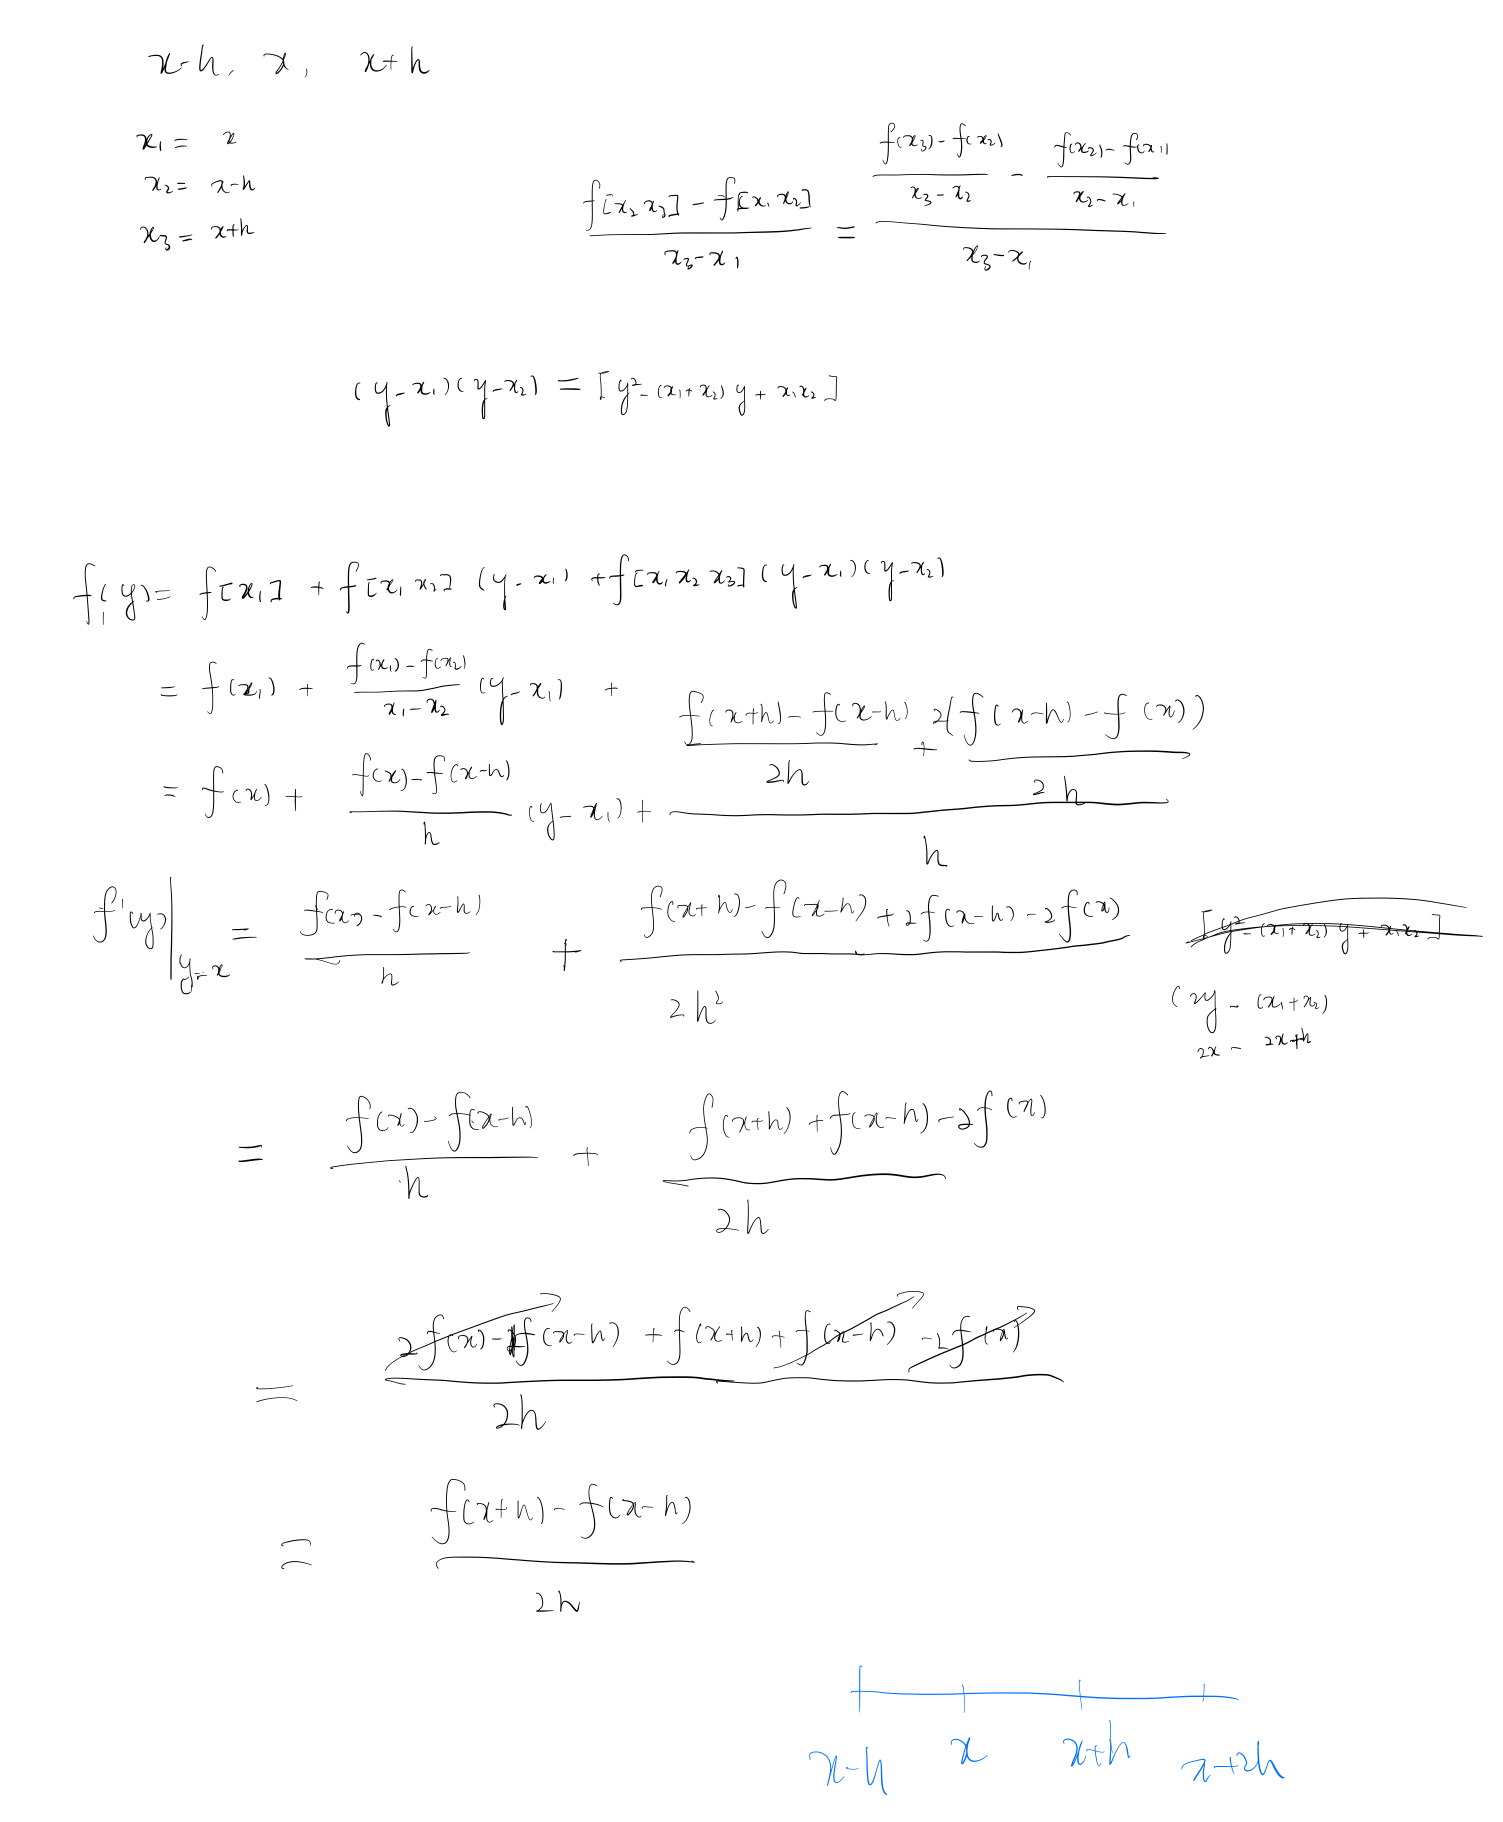 x-h, x, x+h
x₁ = x
x₂ = x-h
x₃ = x+h
(f[x₂ x₃] - f[x₁ x₂]) / (x₃-x₁) = ((f(x₃)-f(x₂))/(x₃-x₂) - (f(x₂)-f(x₁))/(x₂-x₁)) / (x₃-x₁)
(y-x₁)(y-x₂) = [y²-(x₁+x₂)y + x₁x₂]
f(y) = f[x₁] + f[x₁ x₂] (y-x₁) + f[x₁ x₂ x₃](y-x₁)(y-x₂)
= f(x₁) + (f(x₁)-f(x₂))/(x₁-x₂) (y-x₁) +
= f(x) + (f(x)-f(x-h))/h (y-x₁) + ((f(x+h)-f(x-h))/2h + 2(f(x-h)-f(x))/2h) / h
f'(y)|y=x = (f(x)-f(x-h))/h + (f(x+h)-f(x-h)+2f(x-h)-2f(x))/2h² [y²-(x₁+x₂)y + x₁x₂]
(2y - (x₁+x₂)
2x - 2x+h
= (f(x)-f(x-h))/h + (f(x+h)+f(x-h)-2f(x))/2h
= (2f(x)-f(x-h)+f(x+h)+f(x-h)-2f(x))/2h
= (f(x+h)-f(x-h))/2h
x-h x x+h x+2h